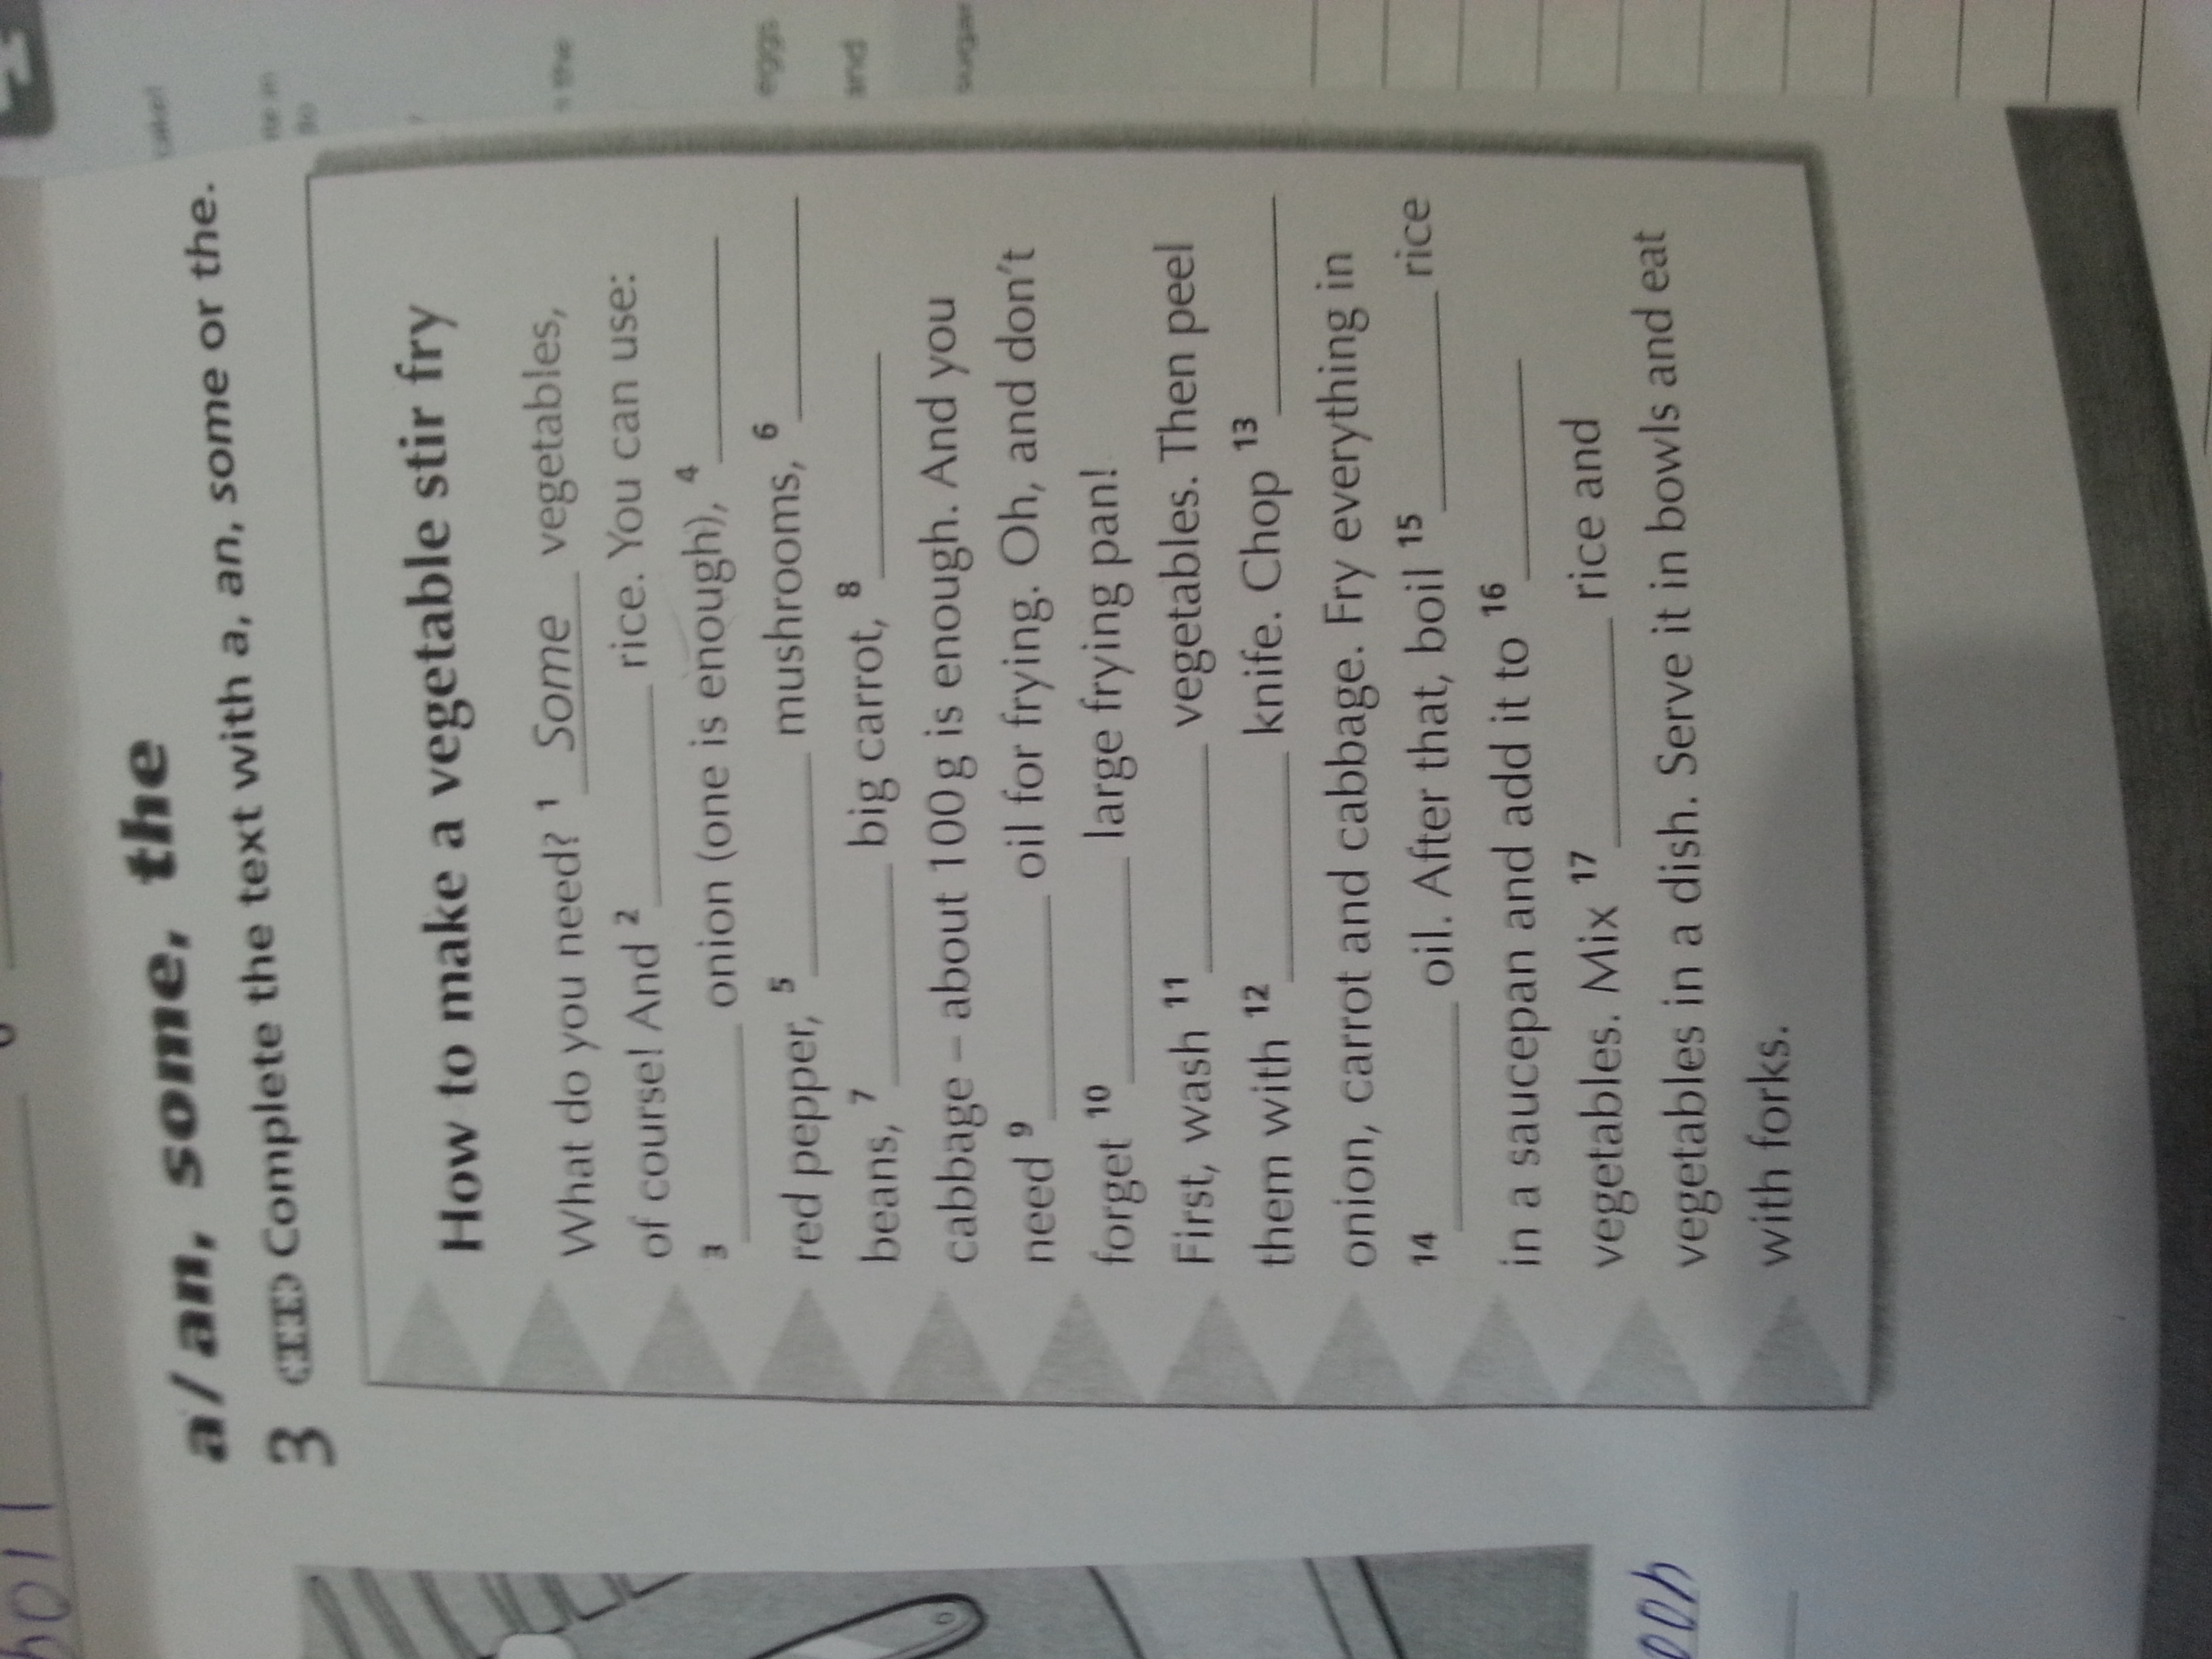 a/an, some, the
3 Complete the text with a, an, some or the.
How to make a vegetable stir fry
What do you need? 1 Some vegetables,
of course! And 2 ____ rice. You can use:
3 ____ onion (one is enough), 4 ____
red pepper, 5 ____ mushrooms, 6 ____
beans, 7 ____ big carrot, 8 ____
cabbage – about 100g is enough. And you
need 9 ____ oil for frying. Oh, and don't
forget 10 ____ large frying pan!
First, wash 11 ____ vegetables. Then peel
them with 12 ____ knife. Chop 13 ____
onion, carrot and cabbage. Fry everything in
14 ____ oil. After that, boil 15 ____ rice
in a saucepan and add it to 16 ____
vegetables. Mix 17 ____ rice and
vegetables in a dish. Serve it in bowls and eat
with forks.
the
eggs
and
sugar